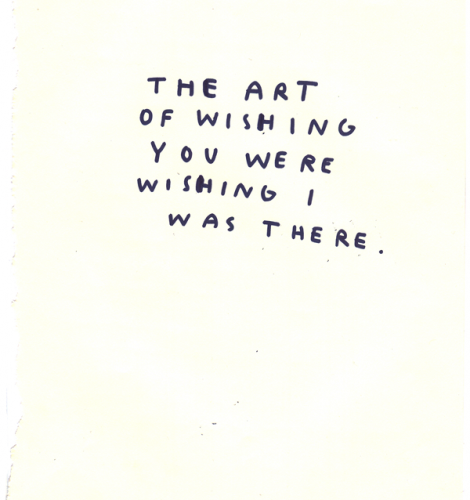 THE ART
OF WISHING
YOU WERE
WISHING I
WAS THERE.